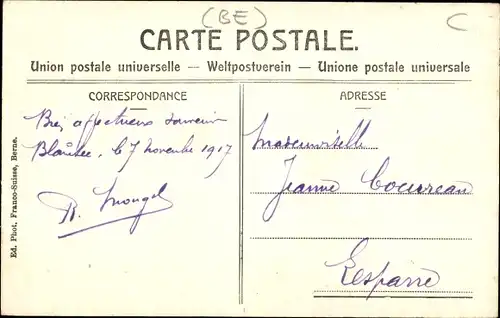 (BE)
C
CARTE POSTALE.
Union postale universelle – Weltpostverein – Unione postale universale
CORRESPONDANCE
affectueux souvenir
le 7 novembre 1917
R. Mongel
ADRESSE
Mademoiselle
Jeanne
Lesparre
Ed. Phot. Franco-Suisse, Berne.